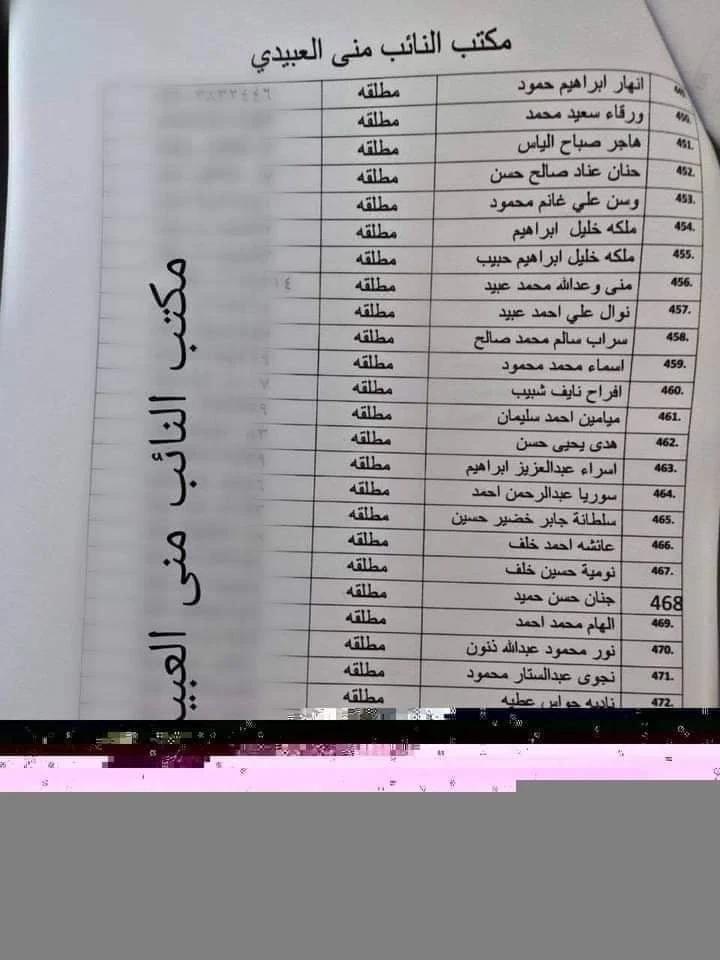 مكتب النائب منى العبيدي
449. انهار ابراهيم حمود مطلقه ٣٨٣٢٤٤٦
450. ورقاء سعيد محمد مطلقه
451. هاجر صباح الياس مطلقه
452. حنان عناد صالح حسن مطلقه
453. وسن علي غانم محمود مطلقه
454. ملكه خليل ابراهيم مطلقه
455. ملكه خليل ابراهيم حبيب مطلقه
456. منى وعدالله محمد عبيد مطلقه
457. نوال علي احمد عبيد مطلقه
458. سراب سالم محمد صالح مطلقه
459. اسماء محمد محمود مطلقه
460. افراح نايف شبيب مطلقه
461. ميامين احمد سليمان مطلقه
462. هدى يحيى حسن مطلقه
463. اسراء عبدالعزيز ابراهيم مطلقه
464. سوريا عبدالرحمن احمد مطلقه
465. سلطانة جابر خضير حسين مطلقه
466. عائشه احمد خلف مطلقه
467. نومية حسين خلف مطلقه
468 جنان حسن حميد مطلقه
469. الهام محمد احمد مطلقه
470. نور محمود عبدالله ذنون مطلقه
471. نجوى عبدالستار محمود مطلقه
472. ناديه حواس عطيه مطلقه
مكتب النائب منى العبي